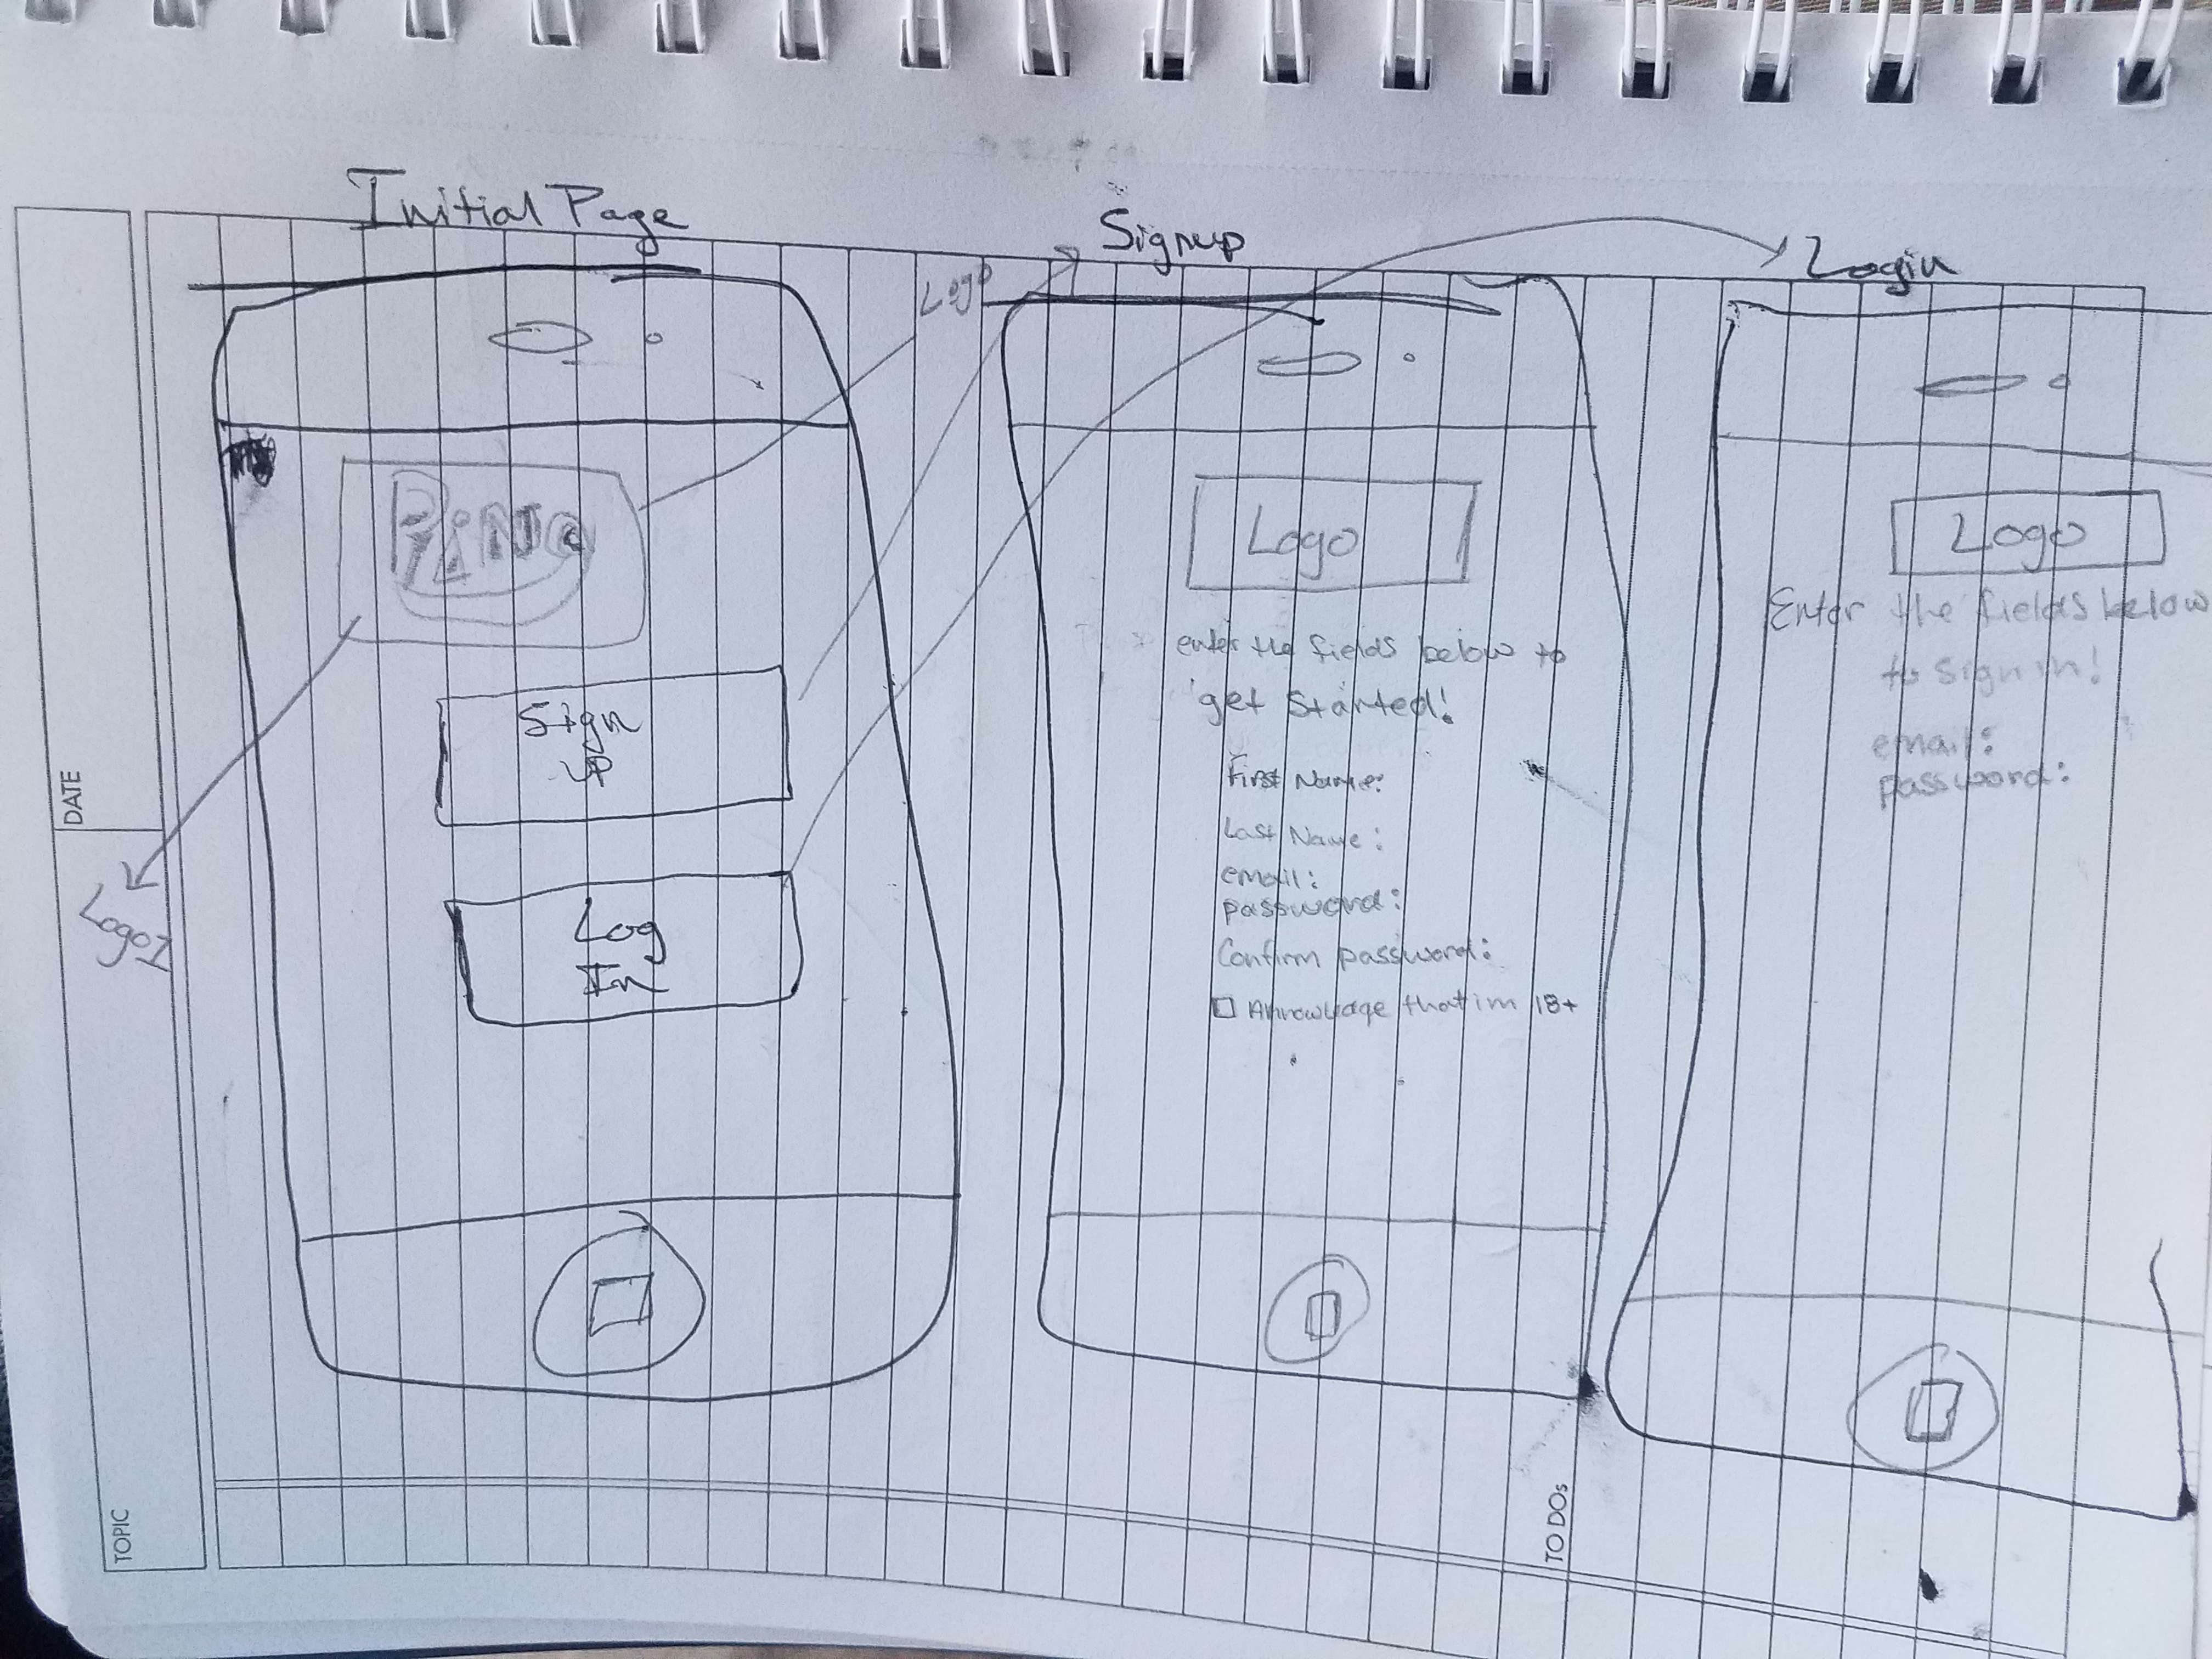 TOPIC
DATE
Logo
Initial Page
Sign
up
Log
In
Logo
Signup
Logo
enter the fields below to
get Started!
First Name:
Last Name:
email:
password:
Confirm password:
that im 18+
TO DOs
Login
Logo
Enter the fields below
to sign in!
email:
password: